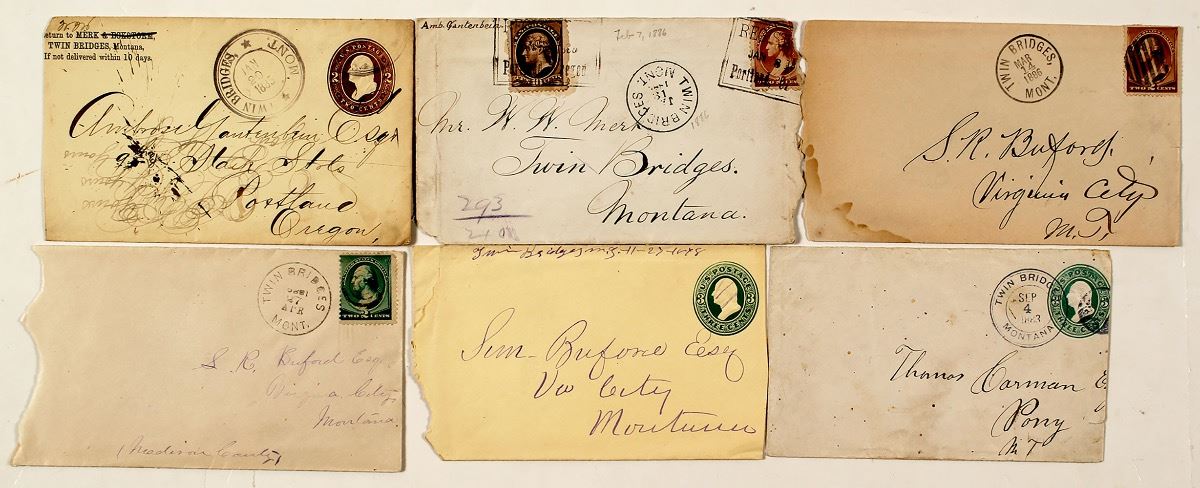 eturn to MERK &
TWIN BRIDGES, Montana,
If not delivered within 10 days.
TWIN BRIDGES, MONT.
U.S. POSTAGE
TWO CENTS
Ambrose Gantenbein Esq
Stair Sts
Portland
Oregon,
Amb. Gantenbein
Feb 7, 1886
Portland
TWIN BRIDGES MONT
1886
Portland
Mr. W. W. Merk
Twin Bridges.
Montana.
293
TWIN BRIDGES,
MAR
14
1886
MONT.
TWO CENTS
S. R. Buford.
Virginia City
M. T.
TWIN BRIDGES
APR
MONT.
TWO CENTS
S. R. Buford Esq
Virginia City
Montana
(Madison County)
Twin Bridges
U.S. POSTAGE
THREE CENTS
Sim Buford Esq
Va City
Montana
TWIN BRIDG
SEP
4
1883
MONTANA
U.S. POSTAGE
THREE CENTS
Thomas Carman E
Pony
M T